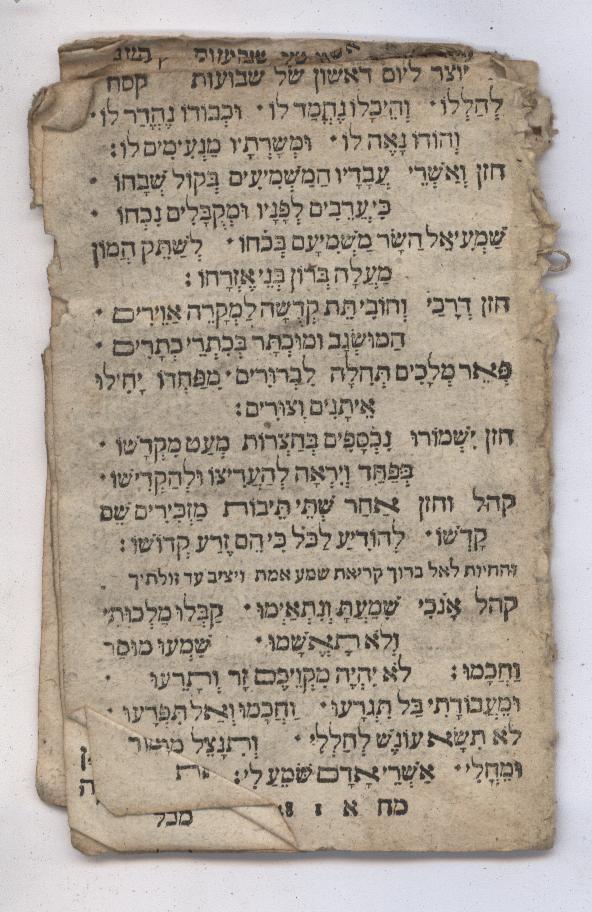 יוצר ליום ראשון של שבועות קסח
לְהַלְלוֹ· וְהֵיכָלוֹ נֶחְמַד לוֹ· וּכְבוֹדוֹ נֶהְדַּר לוֹ·
וְהוֹדוֹ נָאֶה לוֹ· וּמְשָׁרְתָיו מַנְעִימִים לוֹ:
חזן וְאַשְׁרֵי עֲבָדָיו הַמַּשְׁמִיעִים בְּקוֹל שִׁבְחוֹ·
כִּי עֲרֵבִים לְפָנָיו וּמְקֻבָּלִים נִכְחוֹ·
שְׁמַעִיאֵל הַשַּׂר מַשְׁמִיעָם בְּכֹחוֹ· לְשַׁתֵּק הֲמוֹן
מַעְלָה בְּרוֹן בְּנֵי אֶזְרָחוֹ:
חזן דְּרָכַי וְחוֹבִי תֵּת קְדֻשָּׁה לַמְקָרֶה אֲוִירִים·
הַמּוּשְׂגָּב וּמוּכְתָּר בְּכִתְרֵי כְתָרִים·
פְּאֵר מְלָכִים תְּחִלָּה לִבְרוּרִים· מִפַּחְדּוֹ יָחִילוּ
אֵיתָנִים וְצוּרִים:
חזן יִשְׁמוֹרוּ נִכְסָפִים בְּחַצְרוֹת מְעַט מִקְדָּשׁוֹ·
בְּפַחַד וְיִרְאָה לְהַעֲרִיצוֹ וּלְהַקְדִּישׁוֹ·
קהל וחזן אַחַר שְׁתֵּי תֵיבוֹת מַזְכִּירִים שֵׁם
קָדְשׁוֹ· לְהוֹדִיעַ לַכֹּל כִּי הֵם זֶרַע קְדוֹשׁוֹ:
והחיות לאל ברוך קריאת שמע אמת ויציב עד זולתיך
קהל אָנֹכִי שְׁמַעְתָּ וְנִתְאַיְּמוּ· קַבְּלוּ מַלְכוּתִי
וְלֹא תֶאְשָׁמוּ· שִׁמְעוּ מוּסָר
וַחֲכָמוּ: לֹא יִהְיֶה מִקְוֵיכֶם זָר וְתָרֵעוּ·
וּמֵעֲבוֹדָתִי בַּל תִּגְרָעוּ· וַחֲכָמוּ וְאַל תִּפְרָעוּ·
לֹא תִשָּׂא עוֹנֶשׁ לְחַלְּלִי· וְתִנָּצֵל
וּמֵחֳלִי· אַשְׁרֵי אָדָם שֹׁמֵעַ לִי:
מח א 1 48
מכל